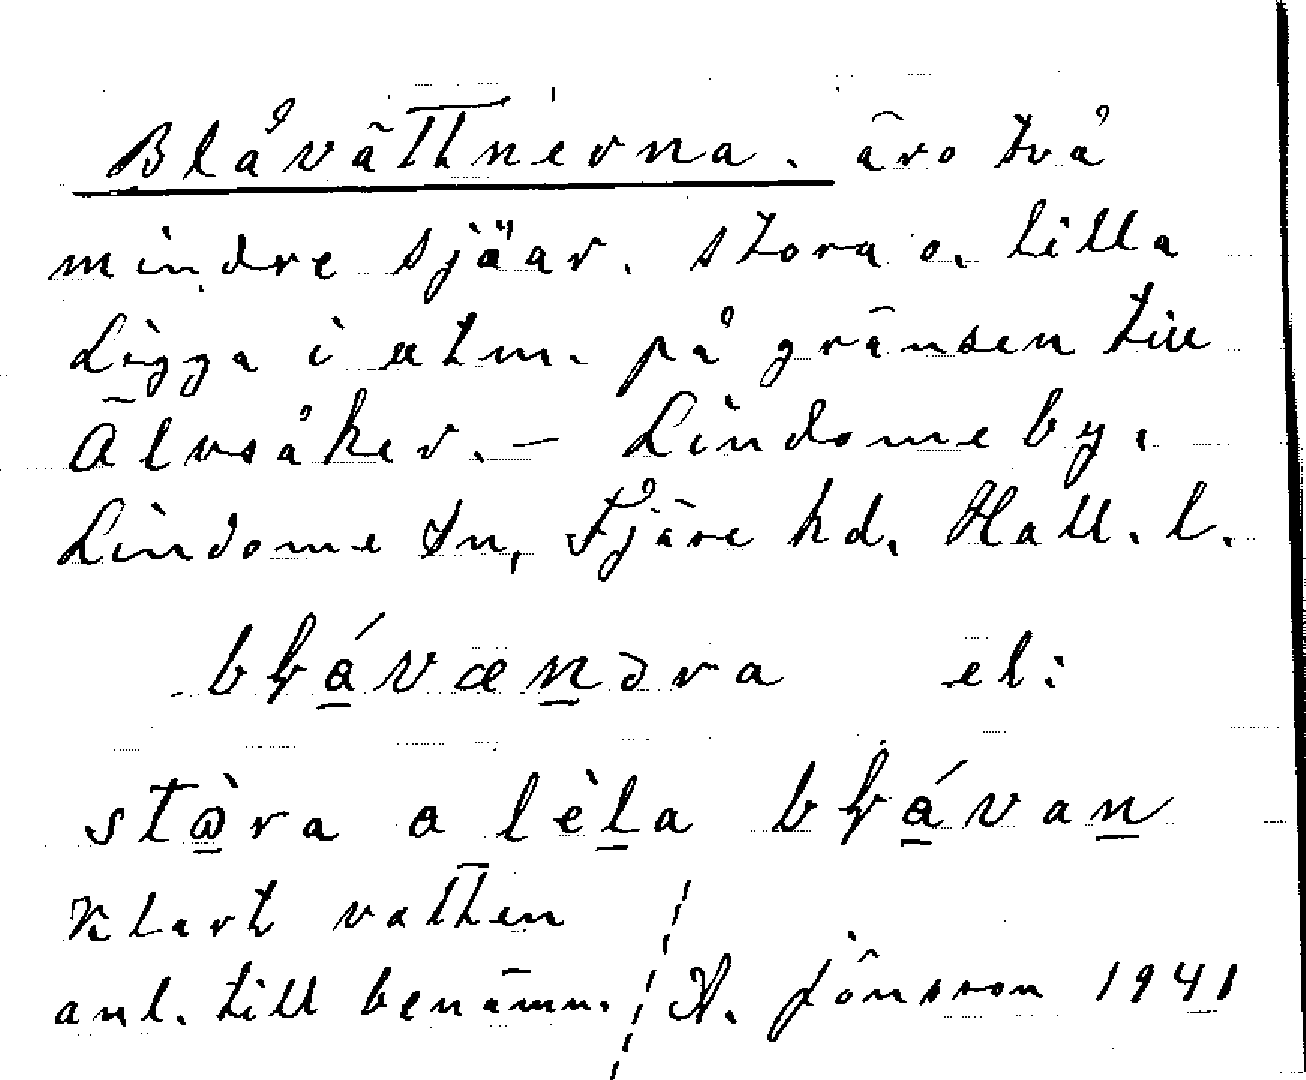 Blåvättnerna. äro två
mindre sjöar. stora o. lilla
Ligga i utm. på gränsen till
Älvsåker. — Lindome by.
Lindome sn, Fjäre hd. Hall. l.
el:
a
Klart vatten
anl. till benämn. A. Jönsson 1941